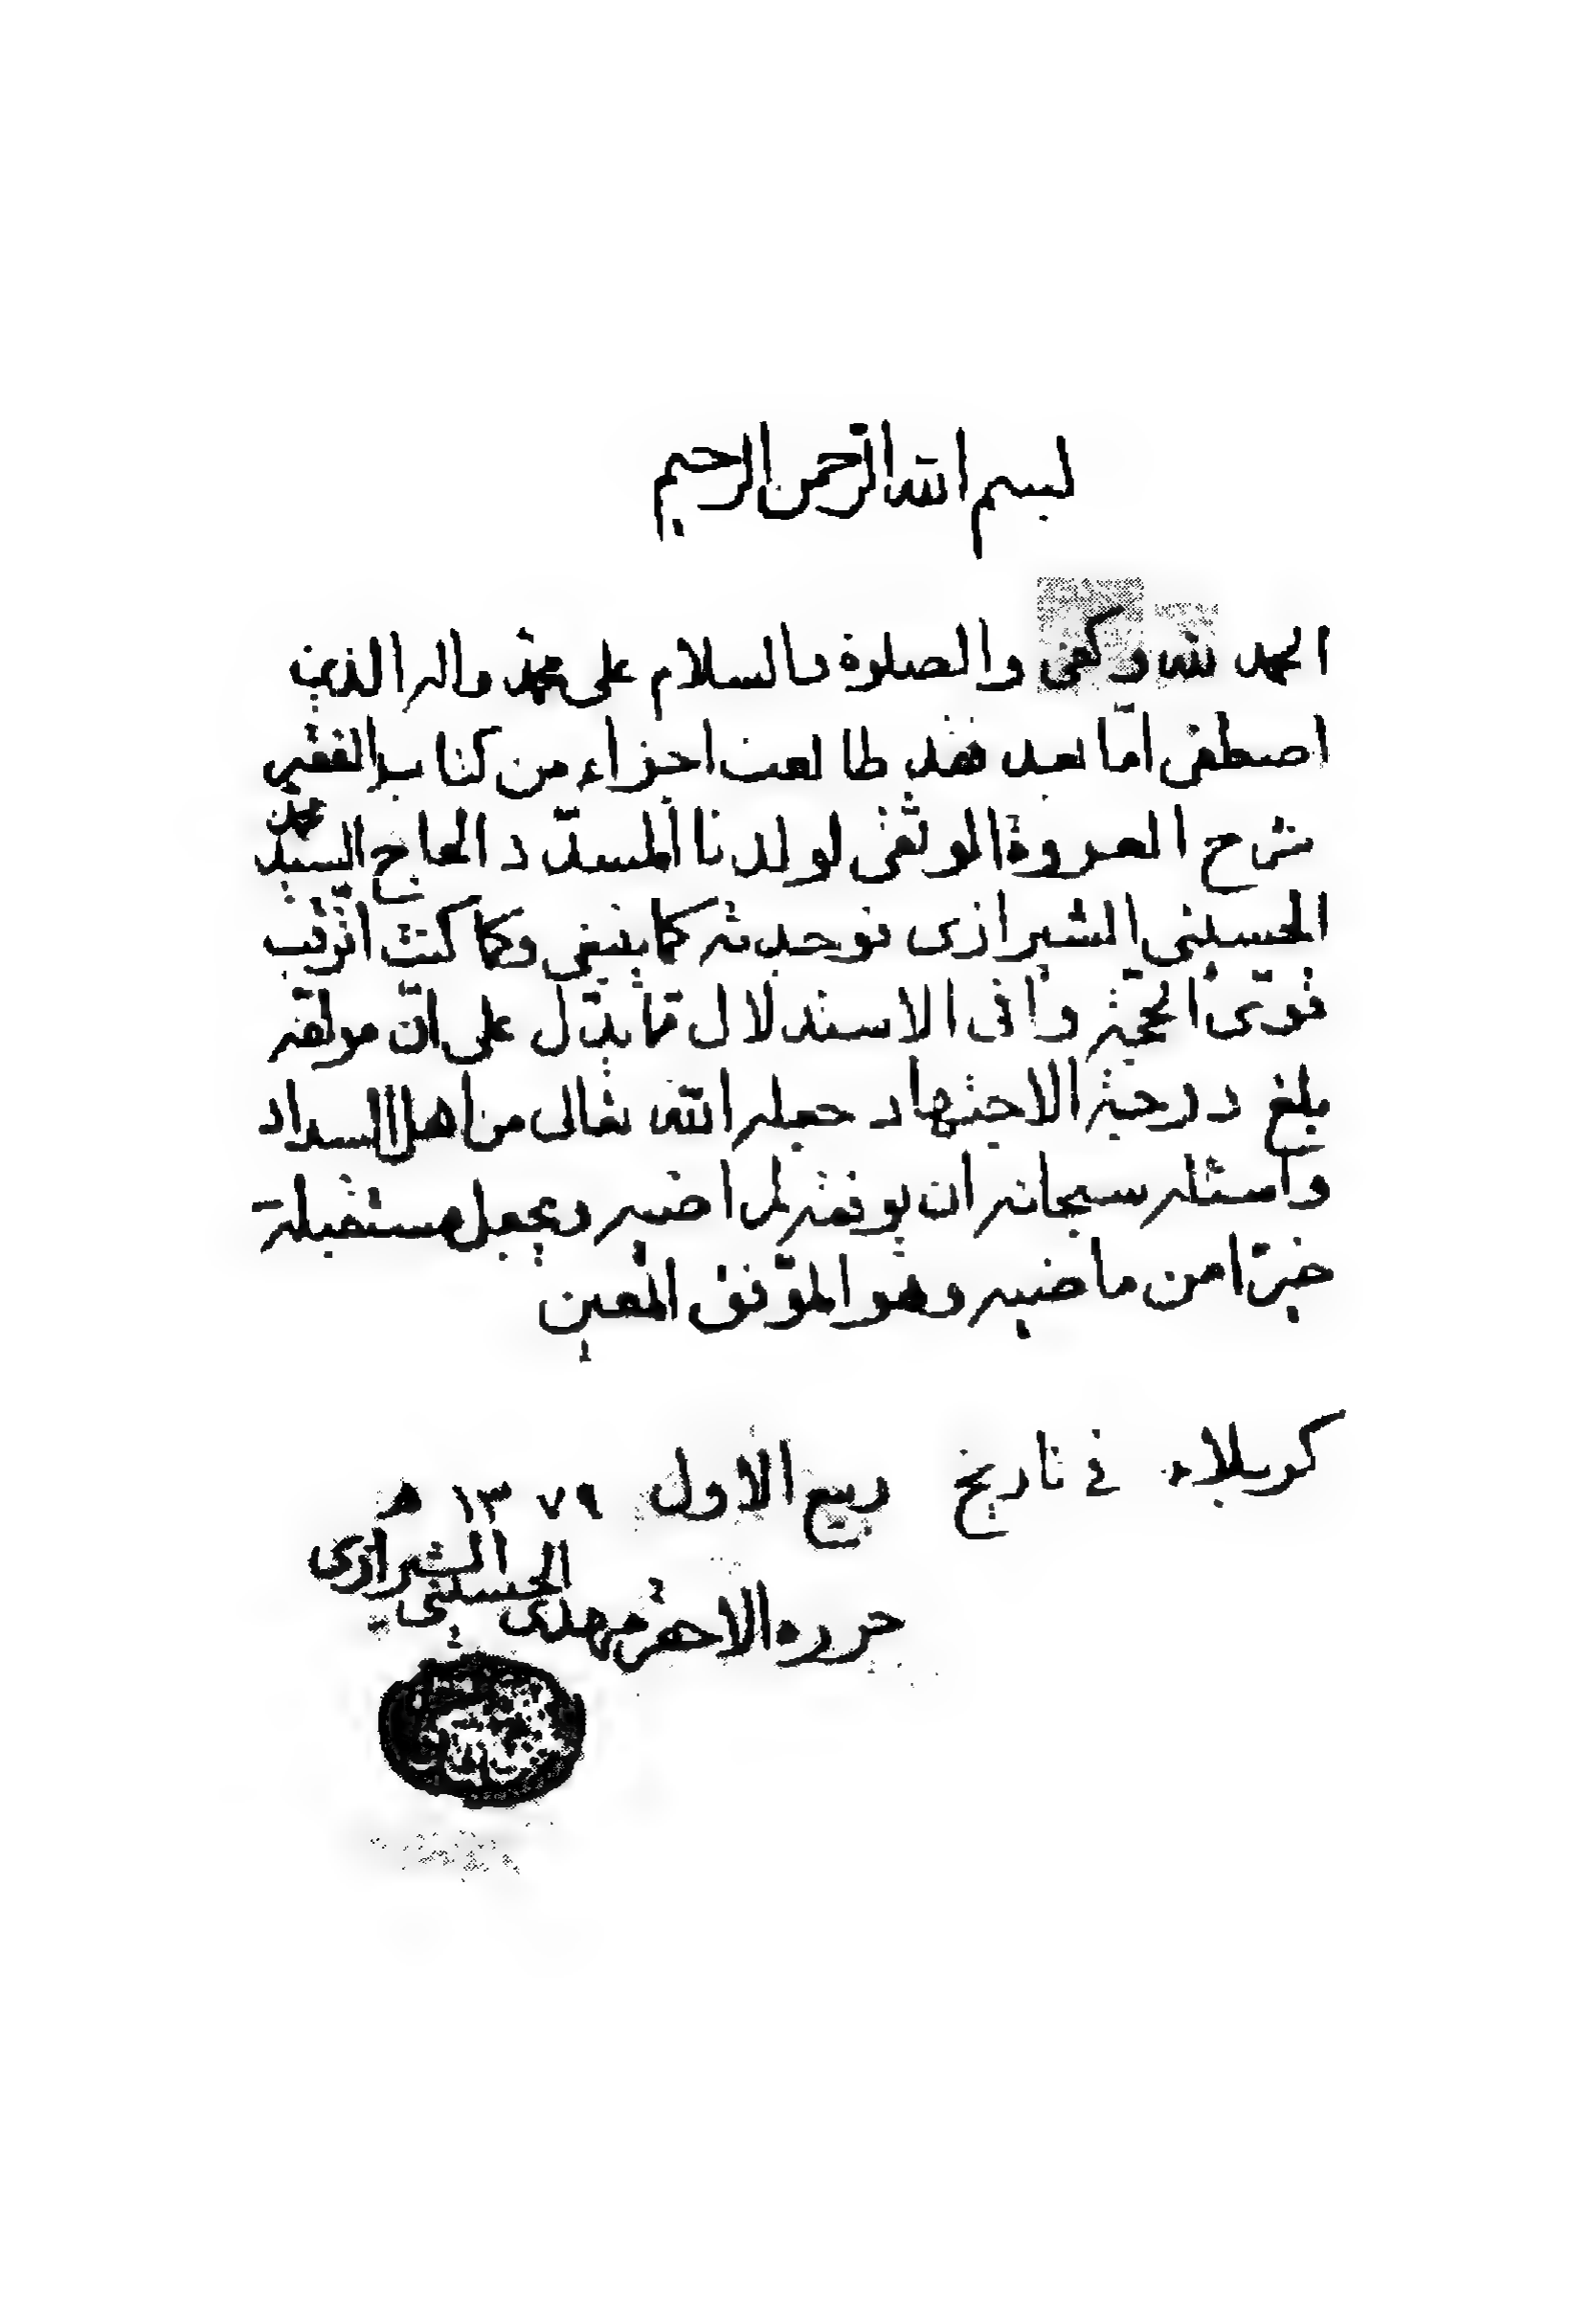 بسم الله الرحمن الرحيم
الحمد لله وكفى والصلوة والسلام على محمد واله الذين
اصطفى امّا بعد فقد طالعت اجزاء من كتاب الفقه
شرح العروة الوثقى لولدنا المسدّد الحاج السيد محمد
الحسيني الشيرازى فوجدته كما ينبغى وكما كنت اترقّب
قوىّ الحجّة وافى الاستدلال ممّا يدّل على انّ مولفه
بلغ درجة الاجتهاد جعله الله تعالى من اهل السداد
واسئله سبحانه ان يوفقه لمراضيه ويجعل مستقبله
خيرًا من ماضيه وهو الموّفق المعين
كربلاء في تاريخ ربيع الاول ١٣٧٩ هـ
حرره الاحقر مهدى الحسيني الشيرازى